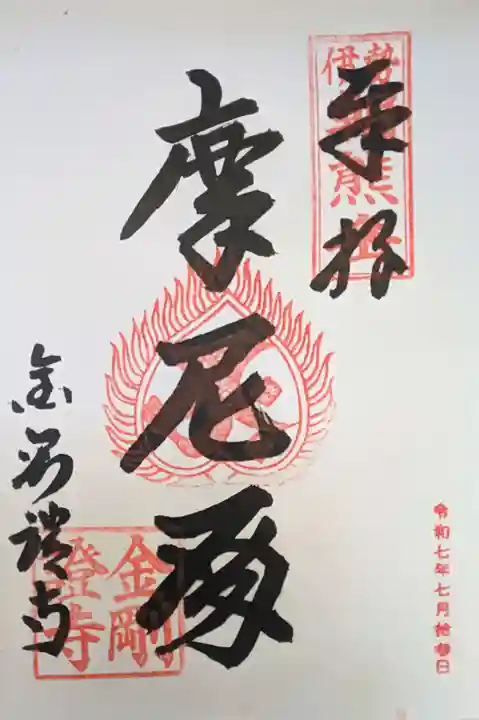 奉拝
伊勢
朝熊岳
摩尼殿
金剛證寺
金剛
證寺
令和七年七月拾参日